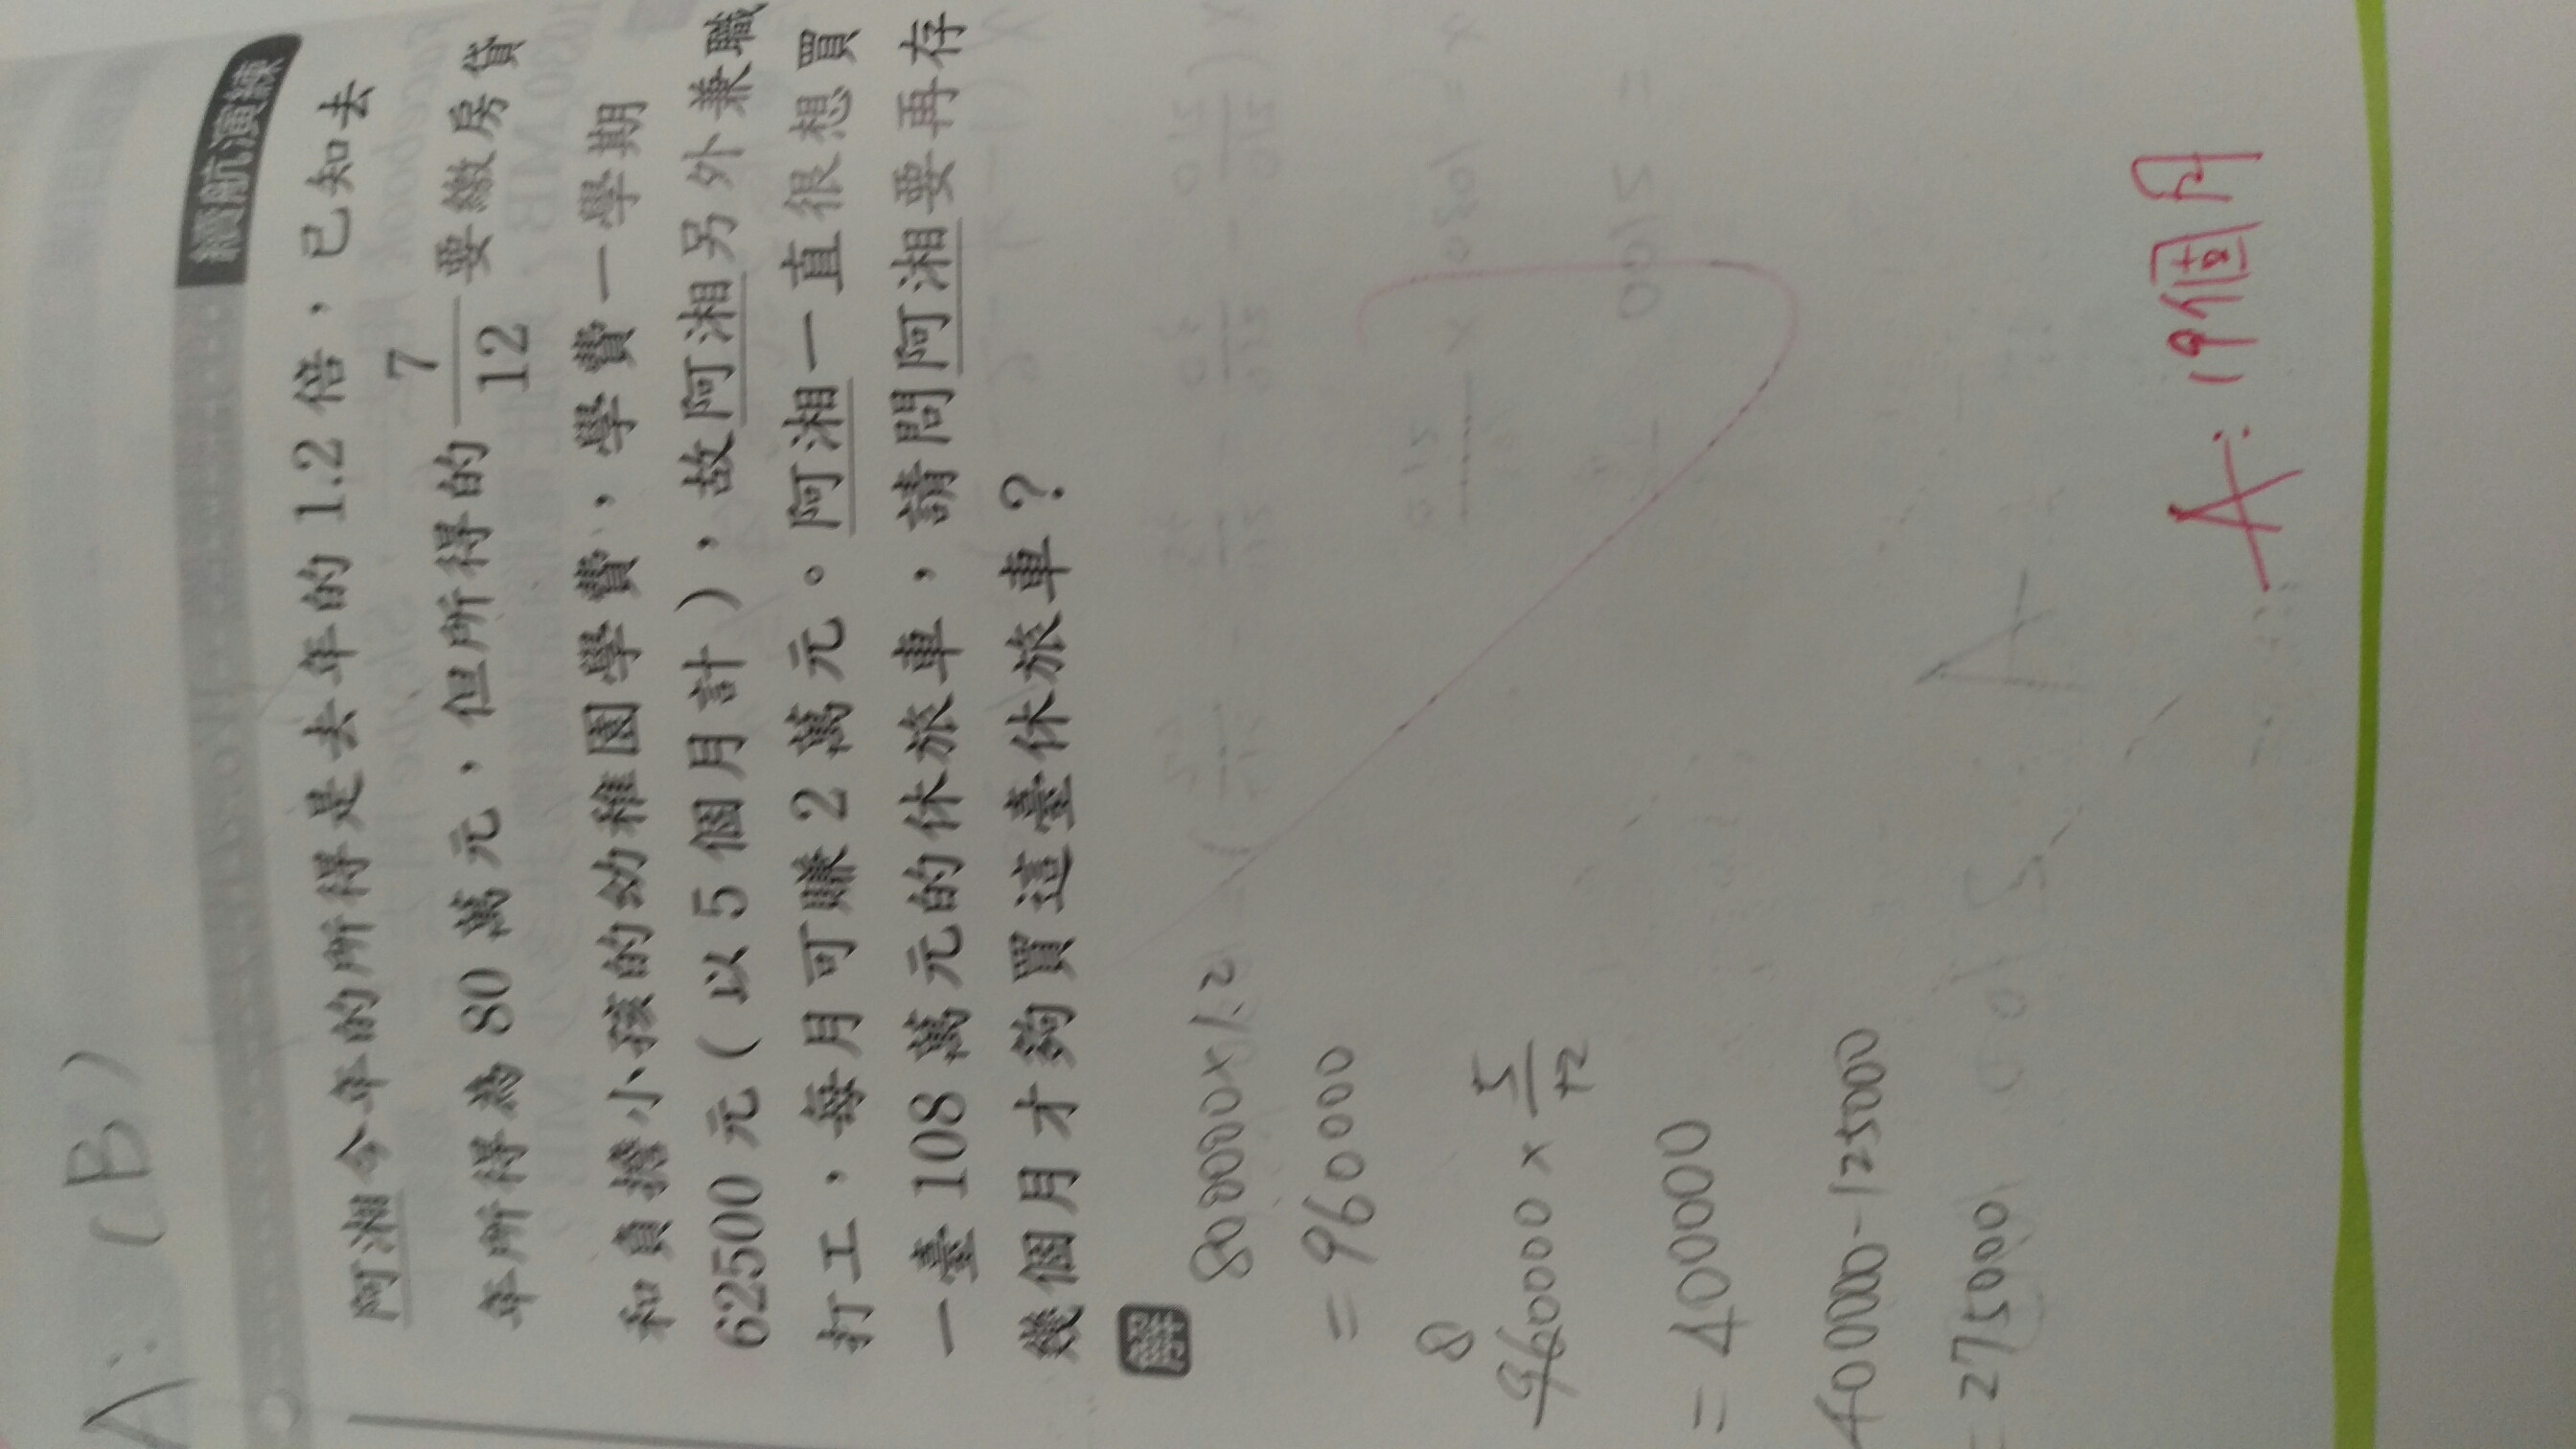 A:(B)
續航演練
阿湘今年的所得是去年的1.2倍，已知去
年所得為80萬元，但所得的7/12要繳房貸
和負擔小孩的幼稚園學費，學費一學期
62500元(以5個月計)，故阿湘另外兼職
打工，每月可賺2萬元。阿湘一直很想買
一臺108萬元的休旅車，請問阿湘要再存
幾個月才夠買這臺休旅車？
解
800000×1.2
=960000
8
960000×5/12
=400000
400000-125000
=275000
A:19個月